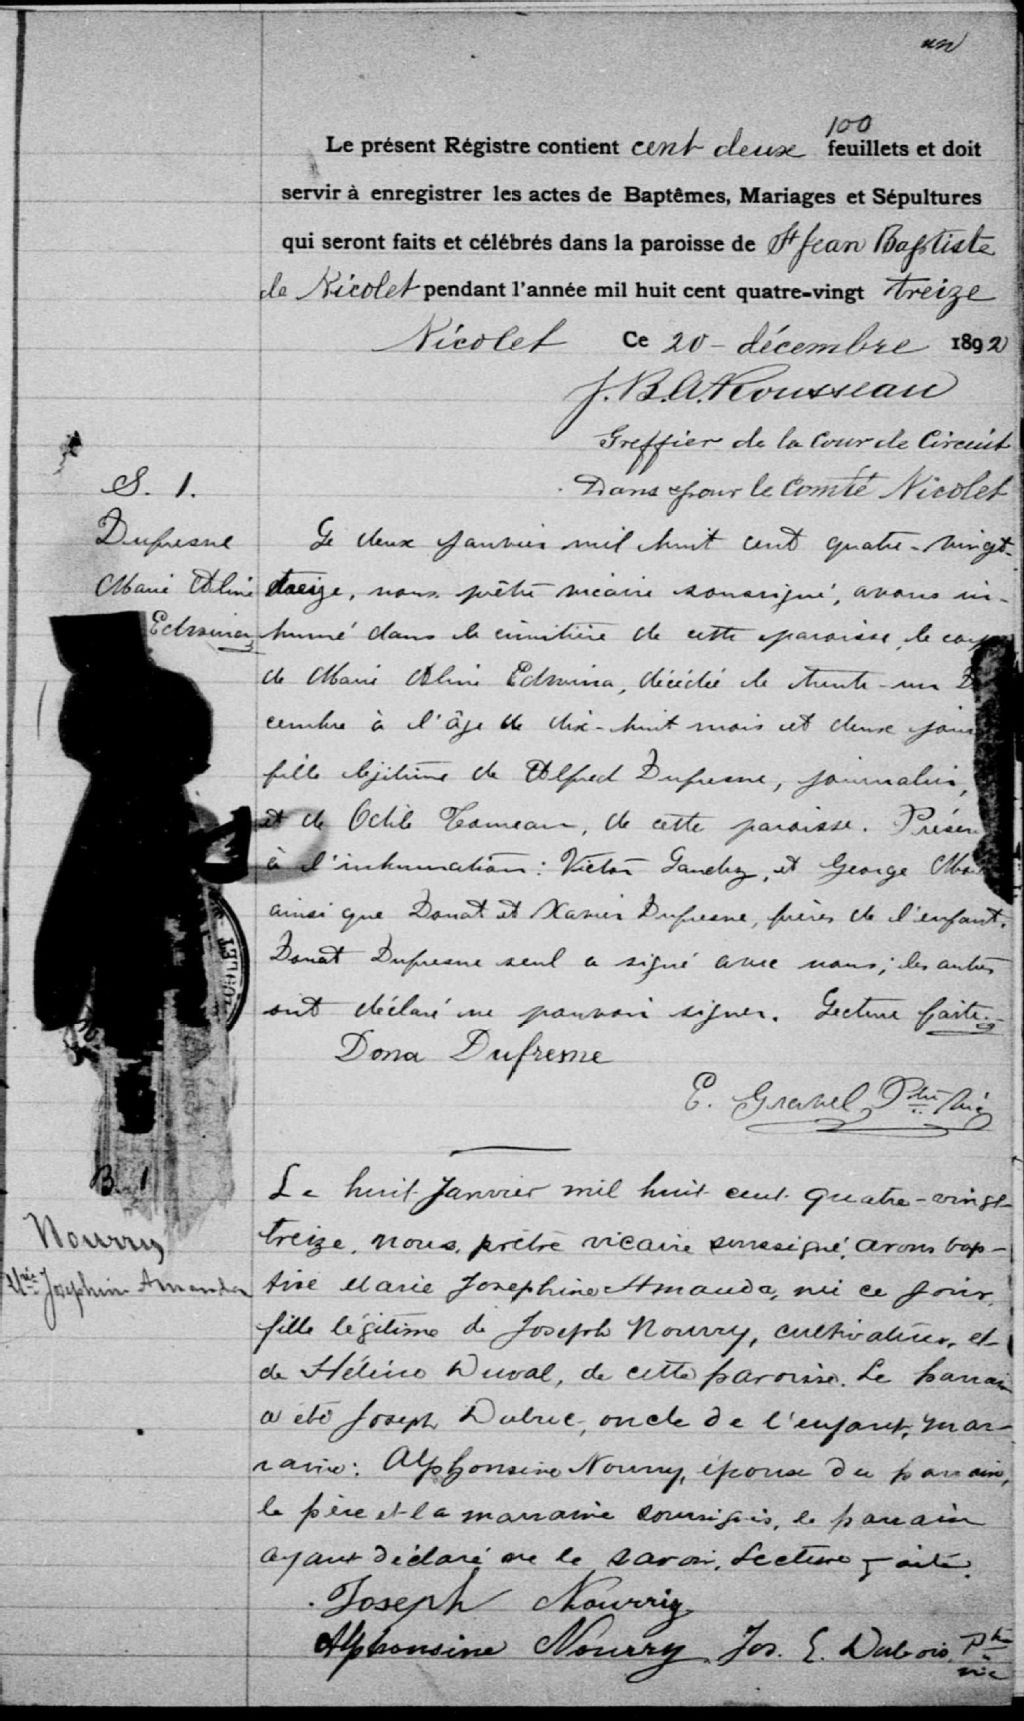 un
100
Le présent Régistre contient cent deux feuillets et doit
servir à enregistrer les actes de Baptêmes, Mariages et Sépultures
qui seront faits et célébrés dans la paroisse de St Jean Baptiste
de Nicolet pendant l'année mil huit cent quatre-vingt treize
Nicolet Ce 20 - décembre 1892
J. B. A. Rousseau
Greffier de la Cour de Circuit
Dans & pour le Comté Nicolet
S. 1.
Dufresne
Marie Aline
Edwina
Le deux janvier mil huit cent quatre-vingt-
treize, nous prêtre vicaire soussigné, avons in-
humé dans le cimitière de cette paroisse, le corps
de Marie Aline Edwina, décédée le trente-un D
cembre à l'âge de dix-huit mois et deux jours
fille légitime de Alfred Dufresne, journalier,
et de Odile Comeau, de cette paroisse. Présen
à l'inhumation: Victor et George
ainsi que Donat et Xavier Dufresne, frères de l'enfant.
Donat Dufresne seul a signé avec nous; les autres
ont déclaré ne pouvoir signer. Lecture faite.
Dona Dufresne
E. Gravel Ptre Vic
B. 1
Nourry
Mrie Josephine Amanda
Le huit Janvier mil huit cent quatre-vingt-
treize, nous, prêtre vicaire soussigné, avons bap-
tisé Marie Josephine Amanda, née ce jour,
fille légitime de Joseph Nourry, cultivateur, et
de Hélène Duval, de cette paroisse. Le parrain
a été Joseph Dubuc, oncle de l'enfant, mar-
raine: Alphonsine Nourry, épouse du parrain,
le père et la marraine soussignés, le parrain
ayant déclaré ne le savoir. Lecture faite.
Joseph Nourry
Alphonsine Nourry Jos. E. Dubois, Ptre vic